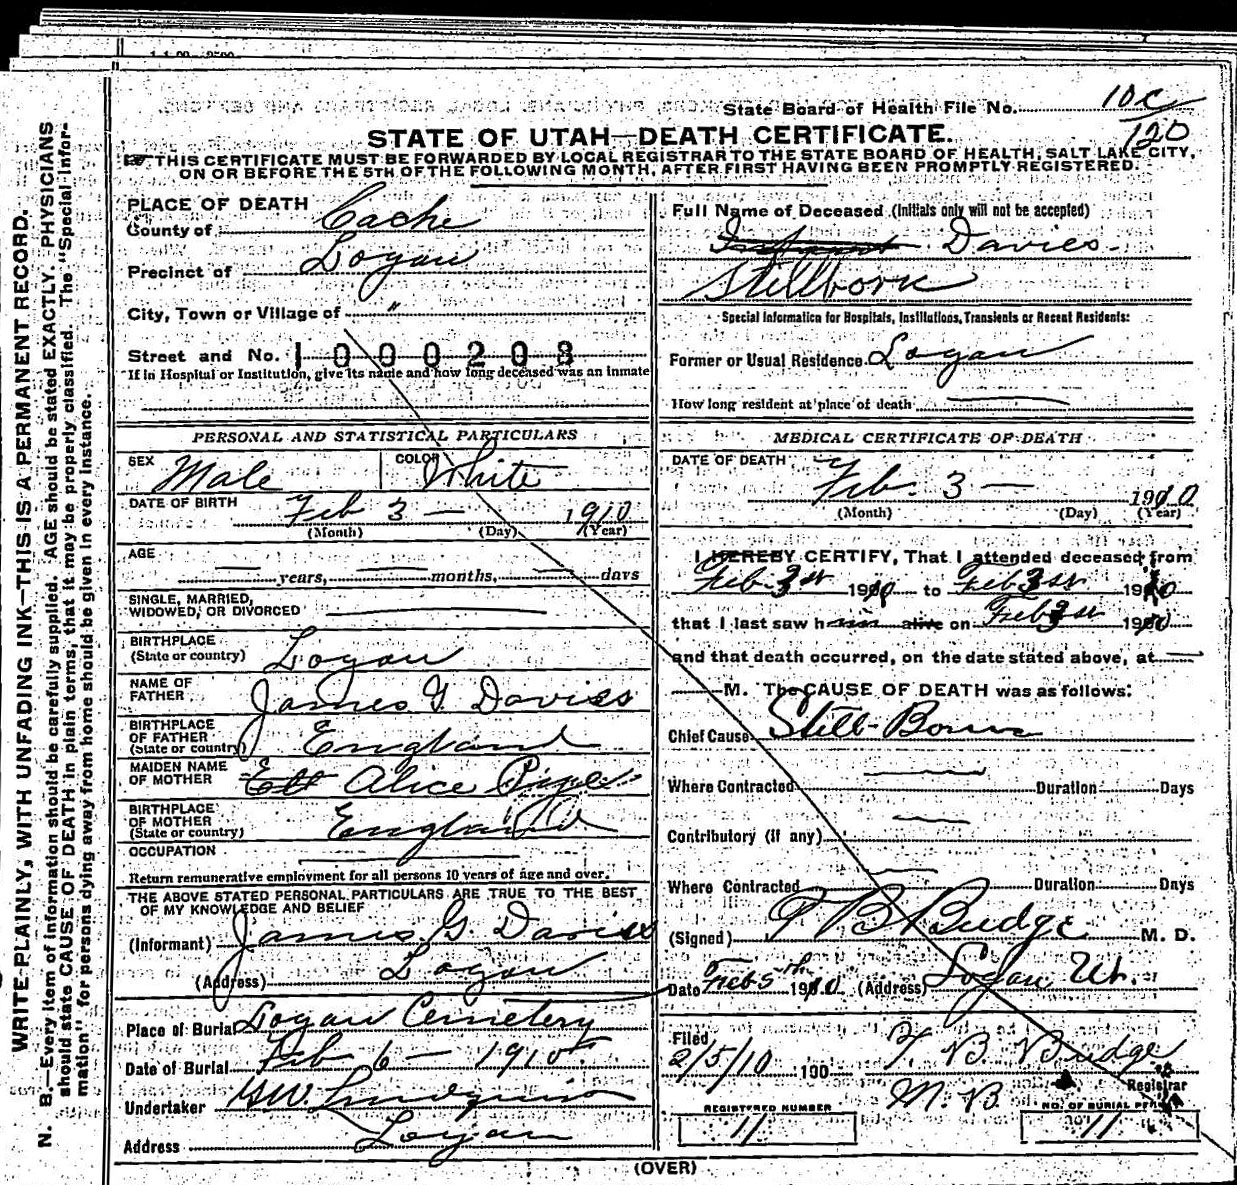 State Board of Health File No. 10c
120
STATE OF UTAH—DEATH CERTIFICATE.
THIS CERTIFICATE MUST BE FORWARDED BY LOCAL REGISTRAR TO THE STATE BOARD OF HEALTH, SALT LAKE CITY,
ON OR BEFORE THE 5TH OF THE FOLLOWING MONTH, AFTER FIRST HAVING BEEN PROMPTLY REGISTERED.
WRITE PLAINLY, WITH UNFADING INK—THIS IS A PERMANENT RECORD.
N. B.—Every item of information should be carefully supplied. AGE should be stated EXACTLY. PHYSICIANS
should state CAUSE OF DEATH in plain terms, that it may be properly classified. The "Special Infor-
mation" for persons dying away from home should be given in every instance.
PLACE OF DEATH
County of Cache
Precinct of Logan
City, Town or Village of "
Street and No. 1000208
If in Hospital or Institution, give its name and how long deceased was an inmate
PERSONAL AND STATISTICAL PARTICULARS
SEX Male COLOR White
DATE OF BIRTH Feb 3 — 1910
(Month) (Day) (Year)
AGE
— years, — months, — days
SINGLE, MARRIED,
WIDOWED, OR DIVORCED
BIRTHPLACE
(State or country) Logan
NAME OF
FATHER James G Davies
BIRTHPLACE
OF FATHER
(State or country) England
MAIDEN NAME
OF MOTHER Alice
BIRTHPLACE
OF MOTHER
(State or country) England
OCCUPATION
Return remunerative employment for all persons 10 years of age and over.
THE ABOVE STATED PERSONAL PARTICULARS ARE TRUE TO THE BEST
OF MY KNOWLEDGE AND BELIEF
(Informant) James G. Davies
(Address) Logan
Place of Burial Logan Cemetery
Date of Burial Feb 6 — 1910
Undertaker Lindquist
Address Logan
Full Name of Deceased (Initials only will not be accepted)
Infant Davies
Stillborn
Special Information for Hospitals, Institutions, Transients or Recent Residents:
Former or Usual Residence Logan
How long resident at place of death —
MEDICAL CERTIFICATE OF DEATH
DATE OF DEATH
Feb. 3 — 1910
(Month) (Day) (Year)
I HEREBY CERTIFY, That I attended deceased from
Feb 3 1910 to Feb 3 1910
that I last saw him alive on Feb 3 1910
and that death occurred, on the date stated above, at —
— M. The CAUSE OF DEATH was as follows:
Chief Cause Still-Born
Where Contracted — Duration Days
Contributory (if any) —
Where Contracted — Duration Days
(Signed) T B Budge M. D.
Date Feb 5th 1910 (Address) Logan Ut.
Filed
2/5/10 190 T. B. Budge
Registrar
REGISTERED NUMBER
11
NO. OF BURIAL PERMIT
11
(OVER)